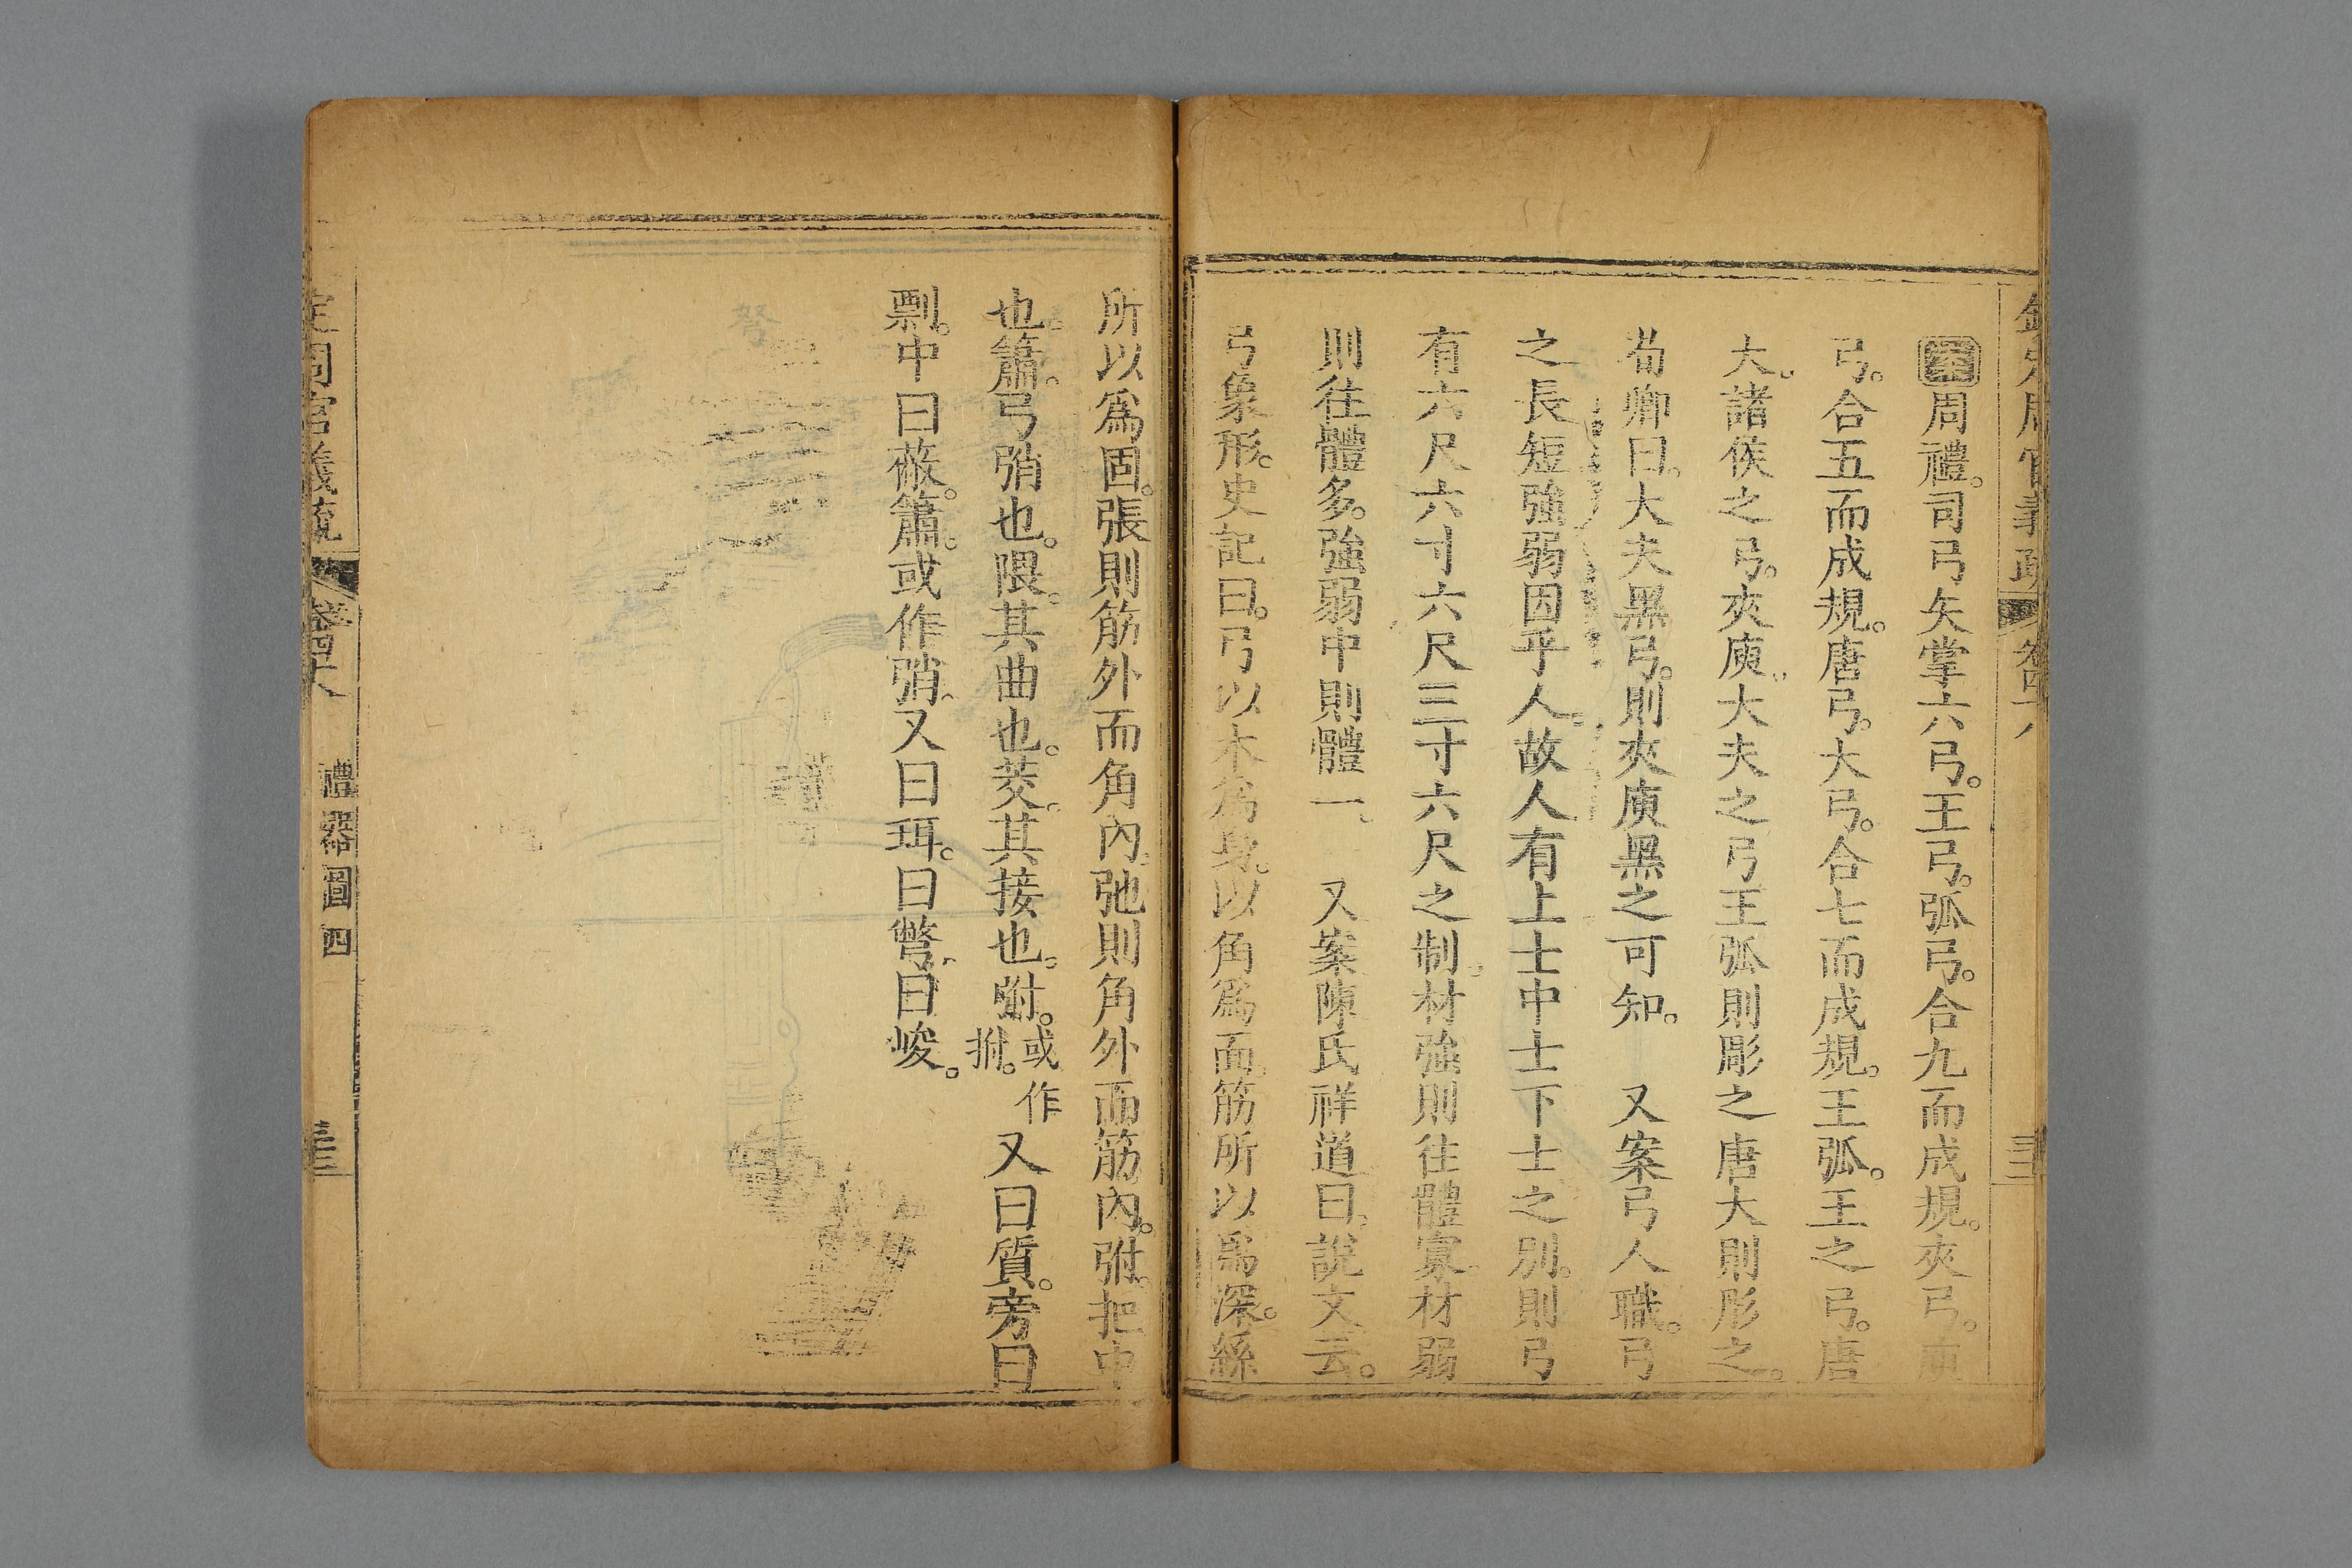 周禮。司弓矢掌六弓。王弓。弧弓。合九而成規。夾弓。庾
弓。合五而成規。唐弓。大弓。合七而成規。王弧。王之弓。唐
大。諸侯之弓。夾庾。大夫之弓王弧則彫之唐大則彤之。
荀卿曰。大夫黑弓。則夾庾黑之可知。 又案弓人職。弓
之長短強弱因乎人。故人有上士中士下士之別。則弓
有六尺六寸六尺三寸六尺之制。材強則往體寡。材弱
則往體多。強弱中則體一。 又案陳氏祥道曰。說文云。
弓象形。史記曰。弓以木為身。以角為面。筋所以為深。絲
所以為固。張則筋外而角內。弛則角外而筋內。弣。把中
也。簫。弓弰也。隈。其曲也。茭。其接也。弣。或作拊。又曰質。旁曰
剽。中曰蔽。簫。或作弰。又曰珥。曰彆。曰峻。
定周官義疏 卷四十八 禮器圖四 三十三